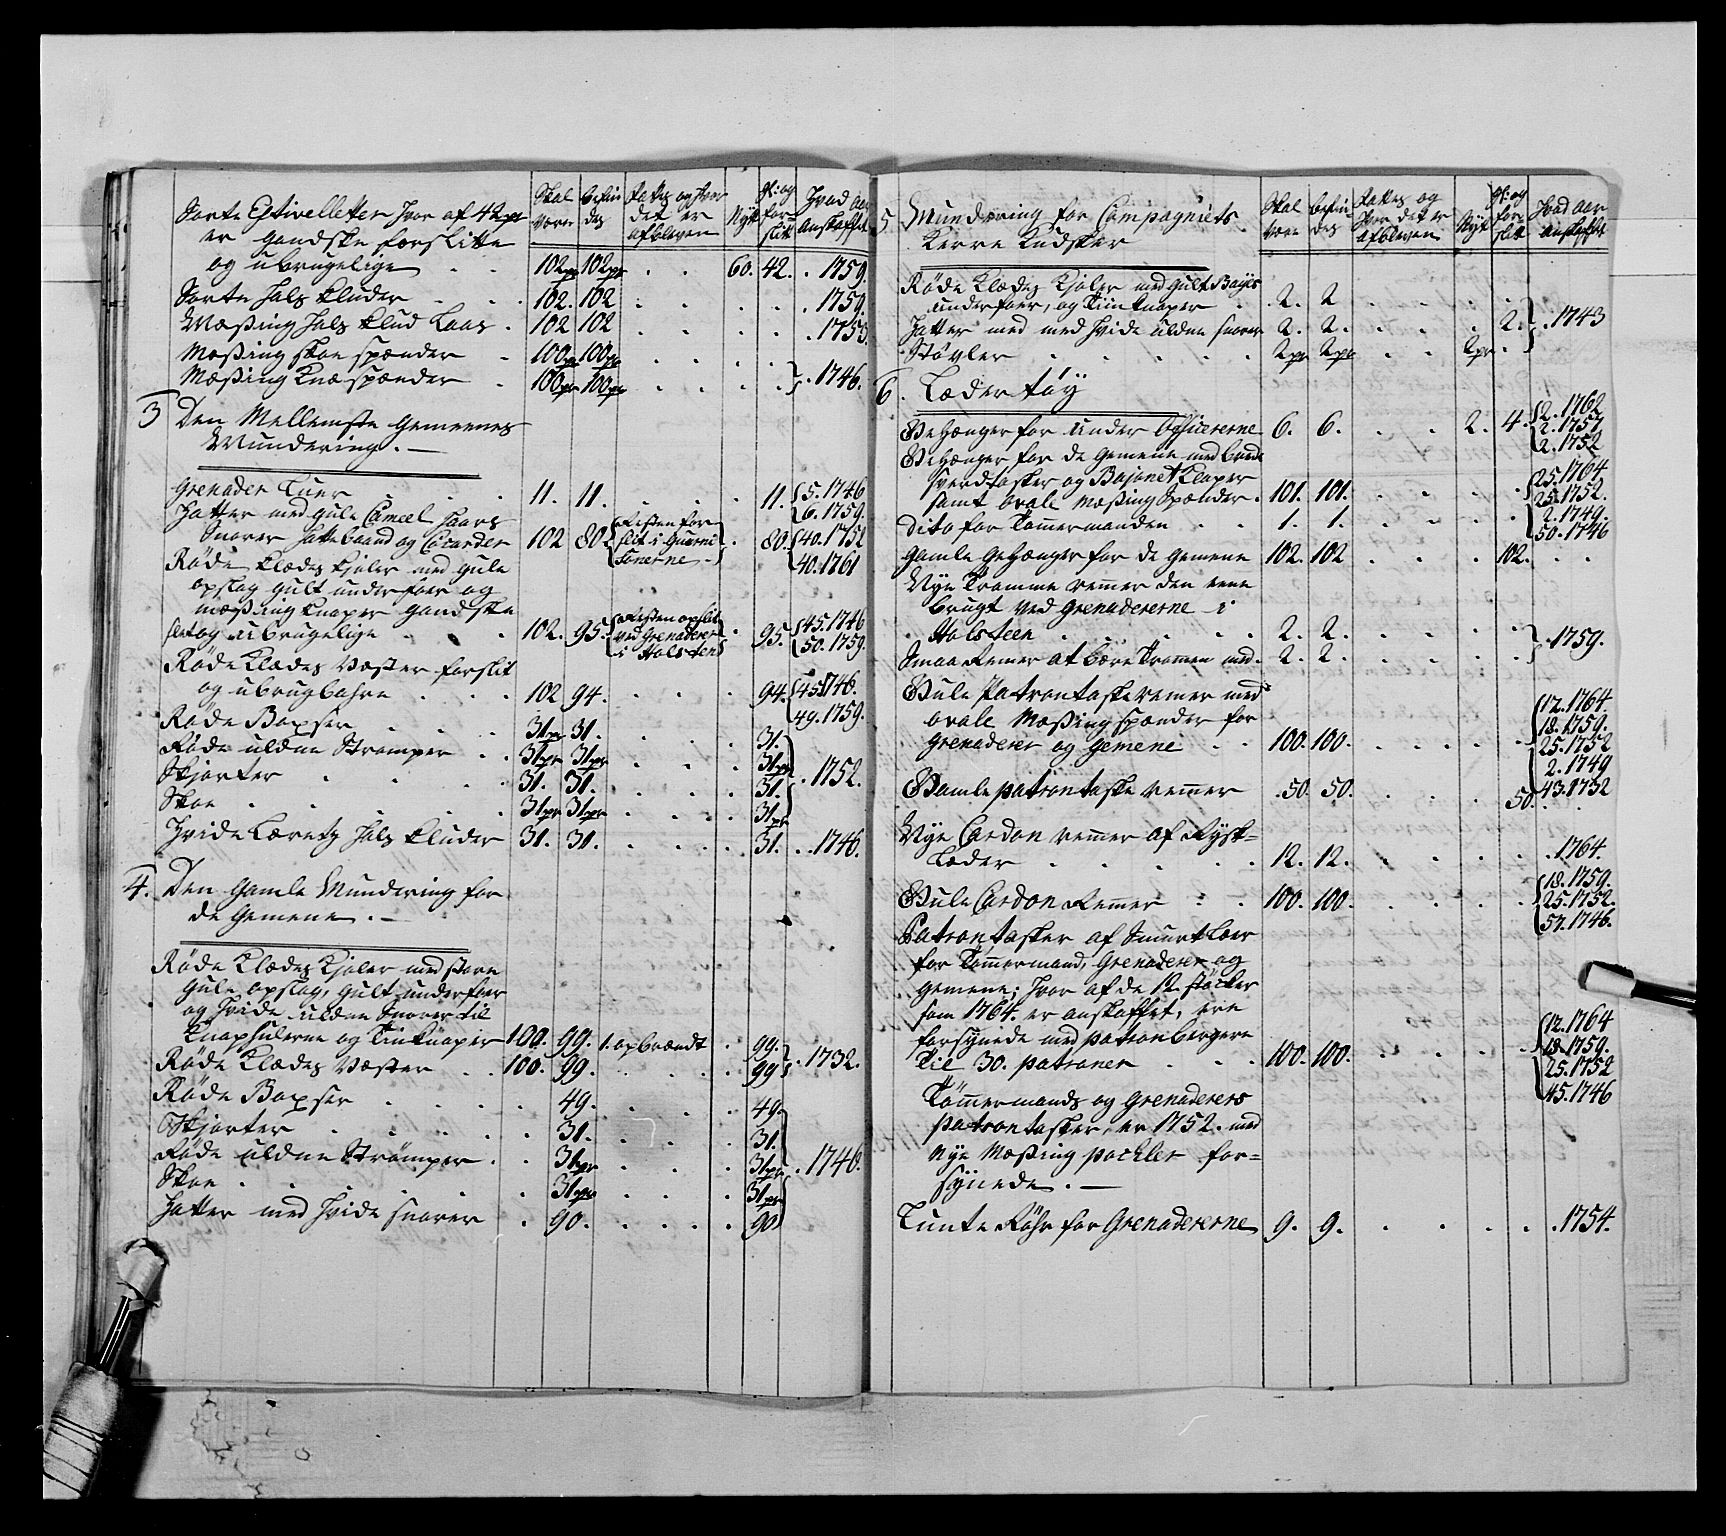 Skal være | befindes | fattes og hver det er afbleven | Nÿt | Gl: og forslitt | Hvad aar anskaffet
Sorte Estivelletter hvor af 42 pr
er gandske forslitte
og ubrugelige . . 102 pr 102 pr . . 60. 42. . 1759.
Sorte Hals Kluder . . 102. 102 . . . . 1759.
Messing Hals Klud Laas . 102 102 . . . . 1753.
Messing Skoe Spænder . 100 pr 100 pr . . . .
Messing Knæspænder . 100 pr 100 pr . . . . } . 1746.
3 Den Mellemste Gemeenes
Mundering . —
Grenader Luer . . . 11. 11. . . . 11. { 5. 1746
6. 1759.
Hatter med gule Cameel Haars
Snorer Hattebaand og Cocarder 102 80 { Resten for
slit i Guarni
sonerne . } . 80. { 40. 1752
40. 1761
Røde Klædes Kjoler med gule
opslag gult underfoer og
messing Knaper gandske
slet og ubrugelige . . 102. 95. { Resten opslit
ved Grenaderer
i Holsten } . 95. { 45. 1746
50. 1759.
Røde Klædes Vester forslit
og ubrugbahre . . . 102 94. . . . 94. { 45. 1746.
49. 1759.
Røde Boxser . . . 31 pr 31. . . . 31.
Røde uldne Strømper . . 31 pr 31 pr . . . 31 pr
Skjorter . . . . 31. 31. . . . 31. } . 1752.
Skoe . . . . . 31 pr 31 pr . . . 31 pr
Hvide Lærets Hals Kluder 31. 31. . . . 31. . . 1746.
4. Den Gamle Mundering for
de Gemene . —
Røde Klædes Kjoler med store
gule opslag, gult underfoer
og hvide uldne Snorer til
Knaphulerne og Tinknaper 100. 99. 1. opbrændt . 99.
Røde Klædes Vester . . 100. 99. . . . 99 } . 1732.
Røde Boxser . . . . 49. . . . 49.
Skjorter . . . . . 31. . . . 31.
Røde uldne Strømper . . 31 pr . . . 31 pr } . 1746.
Skoe . . . . . . 31 pr . . . 31 pr
Hatter med hvide snorer . 90. . . . . 90
Skal være | befindes | fattes og hver det er afbleven | Nÿt | Gl: og forslitt | Hvad aar anskaffet
5 Mundering for Compagniets
Kerre Kudsker
Røde Klædes Kjoler med gult Bajes
underfoer, og Tinknaper . 2. 2 . . . . .
Hatter med med hvide uldne snorer 2. 2. . . . . 2. } . 1743
Støvler . . . . . 2 pr 2 pr . . 2 pr .
6. Læder tøÿ
Gehænger for under Officererne 6. 6. . . 2. 4. { 2. 1762
2. 1757
2. 1752
Gehænger for de Gemene med brede
Sverdtasker og Bajonet Klaper
samt ovale Messing Spænder . 101. 101. . . . . { 25. 1764
25. 1752.
Dito for Tømmermanden . . 1. 1. . . . . 2. 1749.
50. 1746
Gamle Gehænger for de Gemene 102. 102 . . . 102. . .
Nÿe Tromme remer den eene
brugt ved Grenadererne i
Holsteen . . . . . 2. 2. . . . .
Smaa Remer at bære Trommen med. 2. 2. . . . . } . 1759.
Gule Patrontaske remer med
ovale Messing spænder for
Grenaderer og Gemene . . 100. 100. . . . . { 12. 1764.
18. 1759.
25. 1752
2. 1749
43. 1732
Gamle patrontaske remmer . 50. 50. . . . 50. .
Nÿe Cardon remmer af Rÿsk=
Læder . . . . . 12. 12. . . . . . 1764.
Gule Cardon Remer . . 100. 100. . . . . { 18. 1759.
25. 1752.
57. 1746.
Patrontasker af Smurt Læer
for Tømmermand, Grenaderer og
Gemene; hvor af de 12 støcker
som 1764. er anskaffet, ere
forsÿnede med patronbergere
til 30. patroner . . . 100. 100. . . . . { 12. 1764
18. 1759.
25. 1752
45. 1746
Tømmermands og Grenaderers
Patrontasker, er 1752. med
Nÿe Messing pockler for=
sÿnede . —
Lunte Røhr for Grenadererne 9. 9. . . . . . 1754.